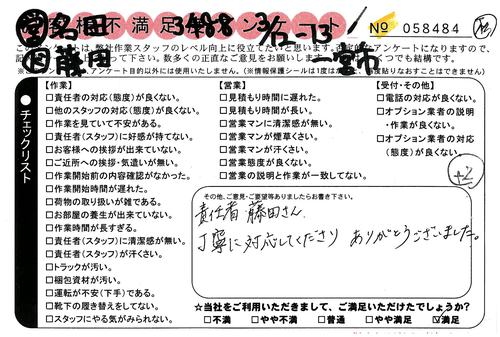 営名田 3498 3/12-13
作藤田 一宮市
№ 058484
このアンケートは、弊社作業スタッフのレベル向上に役立てたいと思います。否定的なアンケートになりますので、
チェックリスト
【作業】
□責任者の対応（態度）が良くない。
□他のスタッフの対応（態度）が良くない。
□作業を見ていて不安がある。
□責任者（スタッフ）に好感が持てない。
□お客様への挨拶が出来ていない。
□ご近所への挨拶・気遣いが無い。
□作業開始前の内容確認がなかった。
□作業開始時間が遅れた。
□荷物の取り扱いが雑である。
□お部屋の養生が出来ていない。
□作業時間が長すぎる。
□責任者（スタッフ）に清潔感が無い。
□責任者（スタッフ）が汗くさい。
□トラックが汚い。
□梱包資材が汚い。
□運転が不安（下手）である。
□靴下の履き替えをしてない。
□スタッフにやる気がみられない。
【営業】
□見積もり時間に遅れた。
□見積もり時間が長い。
□営業マンに清潔感が無い。
□営業マンが煙草くさい。
□営業マンが汗くさい。
□営業態度が良くない。
□営業の説明と作業が一致してない。
【受付・その他】
□電話の対応が良くない。
□オプション業者の説明
・作業が良くない。
□オプション業者の対応
（態度）が良くない。
+2
その他、ご意見・ご要望等ありましたらお書き下さい。
責任者 藤田さん
丁寧に対応してくださり ありがとうございました。
☆当社をご利用いただきまして、ご満足いただけたでしょうか？
□不満 □やや不満 □普通 □やや満足 ☑満足